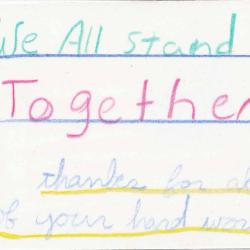 We All stand
Together
thanks for al
of your hard wor